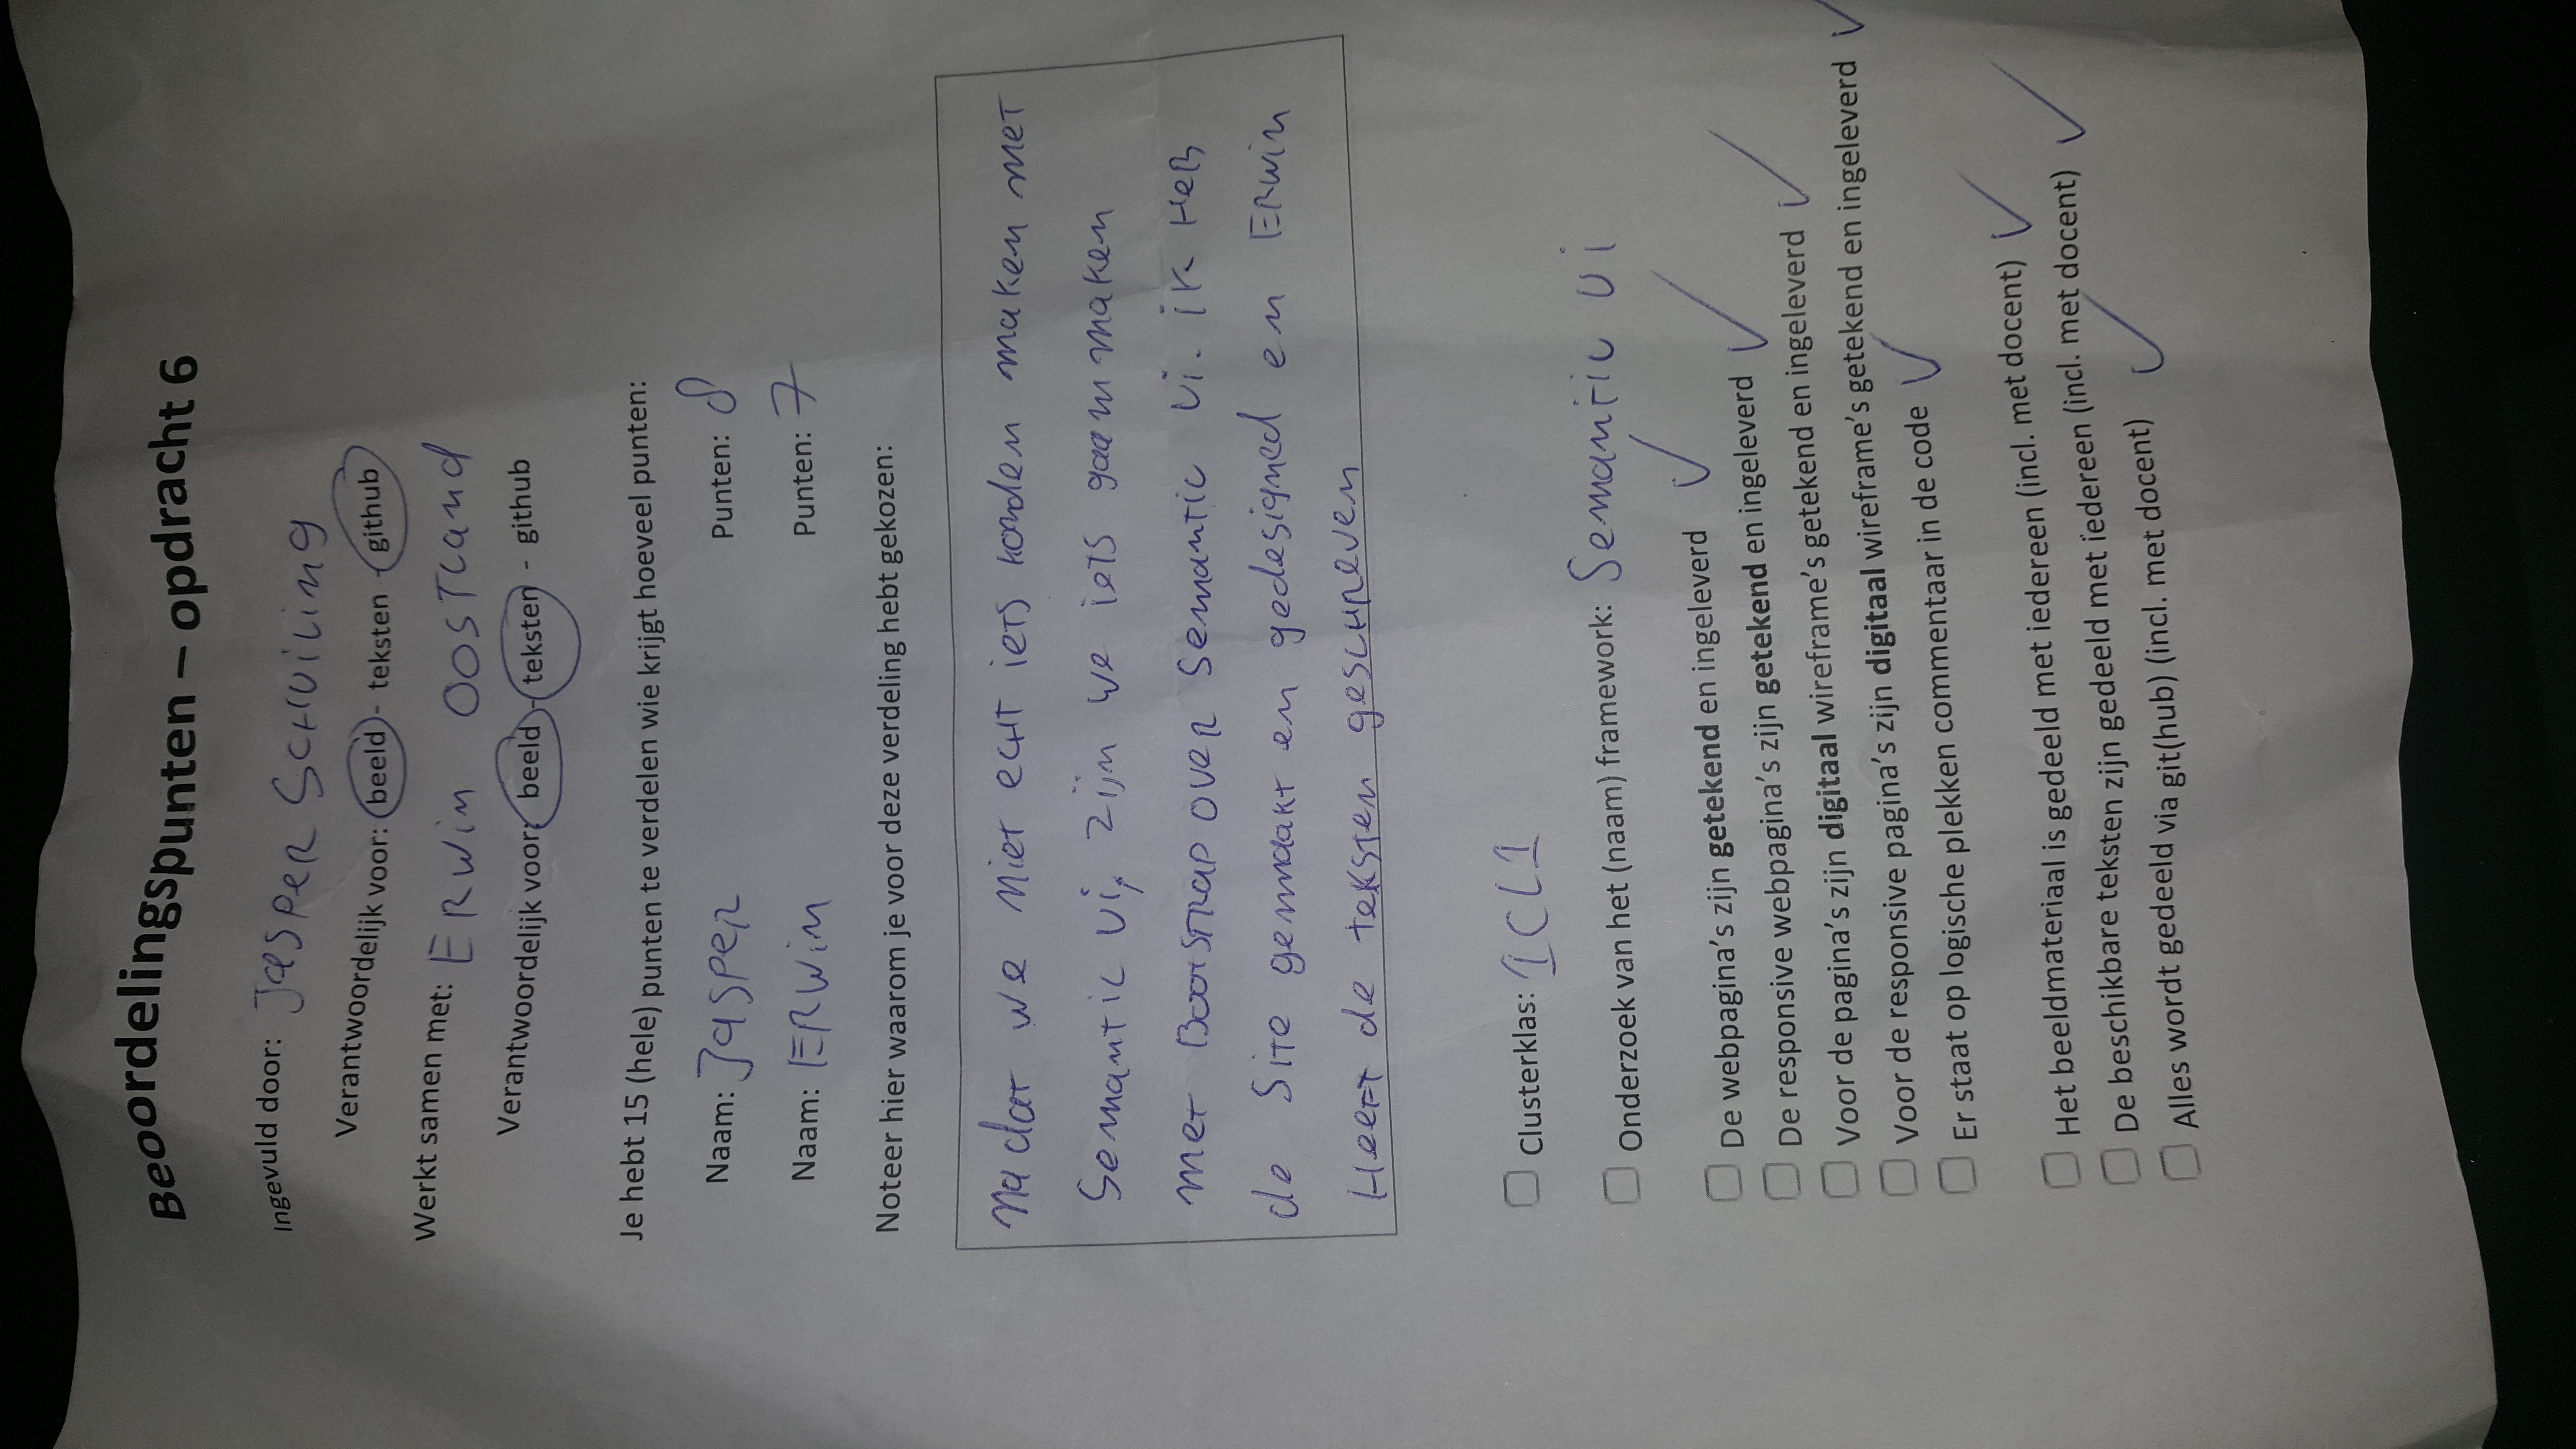 Beoordelingspunten – opdracht 6
Ingevuld door: Jasper Schuiling
Verantwoordelijk voor: beeld - teksten - github
Werkt samen met: Erwin Oostland
Verantwoordelijk voor: beeld - teksten - github
Je hebt 15 (hele) punten te verdelen wie krijgt hoeveel punten:
Naam: Jasper Punten: 8
Naam: Erwin Punten: 7
Noteer hier waarom je voor deze verdeling hebt gekozen:
Na dat we niet echt iets konden maken met
Semantic ui, zijn we iets gaan maken
met Bootstrap over Semantic Ui. ik HeB
de Site gemaakt en gedesigned en Erwin
Heeft de teksten geschreven
Clusterklas: 1CL1
Onderzoek van het (naam) framework: Semantic Ui
De webpagina's zijn getekend en ingeleverd ✓
De responsive webpagina's zijn getekend en ingeleverd ✓
Voor de pagina's zijn digitaal wireframe's getekend en ingeleverd ✓
Voor de responsive pagina's zijn digitaal wireframe's getekend en ingeleverd ✓
Er staat op logische plekken commentaar in de code ✓
Het beeldmateriaal is gedeeld met iedereen (incl. met docent) ✓
De beschikbare teksten zijn gedeeld met iedereen (incl. met docent) ✓
Alles wordt gedeeld via git(hub) (incl. met docent) ✓